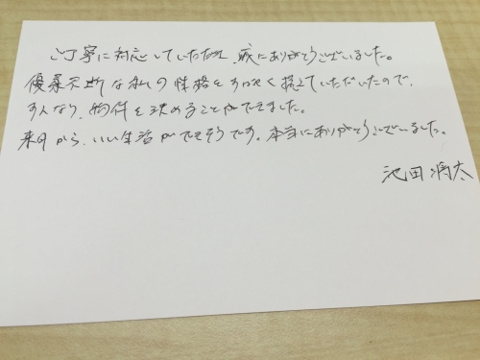 ご丁寧に対応していただき、誠にありがとうございました。
優柔不断な私の性格をすばやく捉えていただいたので、
すんなり、物件を決めることができました。
来月から、いい生活ができそうです。本当にありがとうございました。
池田 翔太